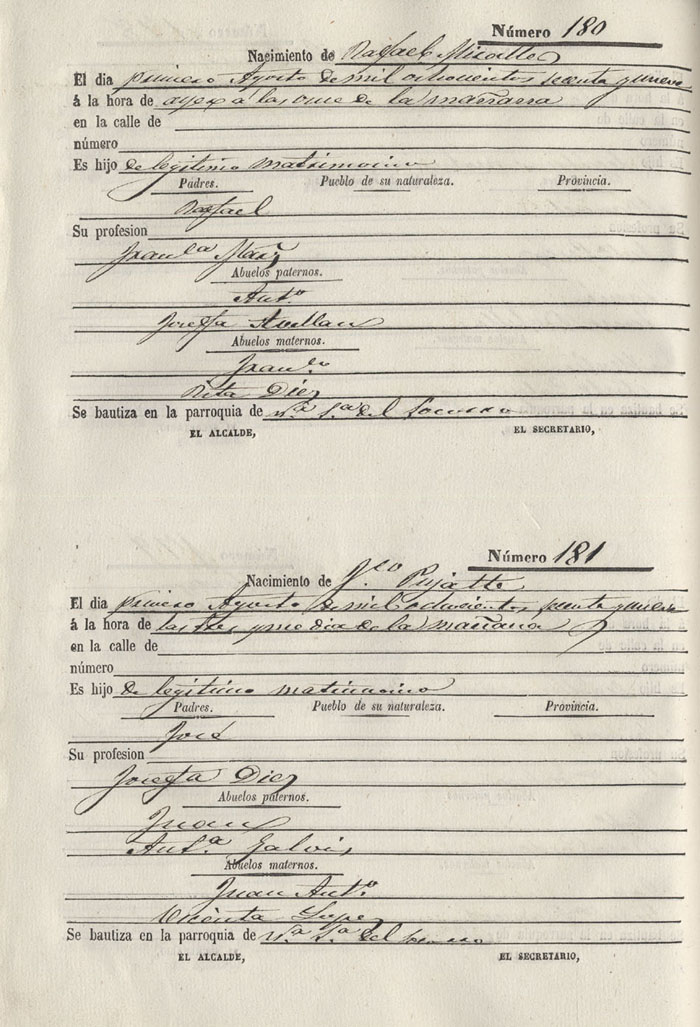 Número 180
Nacimiento de Rafael Miralles
El dia primero Agosto de mil ochocientos secenta y nueve
á la hora de ayer a las once de la mañana
en la calle de
número
Es hijo de legitimo matrimonio
Padres. Pueblo de su naturaleza. Provincia.
Rafael
Su profesion
Fran.ca
Abuelos paternos.
Ant.o
Josefa Avellan
Abuelos maternos.
Fran.co
Rita Diez
Se bautiza en la parroquia de N.a S.a del Socorro
EL ALCALDE, EL SECRETARIO,
Número 181
Nacimiento de Pujalte
El dia primero Agosto de mil ochocientos secenta y nueve
á la hora de las tres y media de la mañana
en la calle de
número
Es hijo de legitimo matrimonio
Padres. Pueblo de su naturaleza. Provincia.
José
Su profesion
Josefa Diez
Abuelos paternos.
Juan
Ant.a Galvis
Abuelos maternos.
Juan Ant.o
Vicenta Lopez
Se bautiza en la parroquia de N.a S.a del Socorro
EL ALCALDE, EL SECRETARIO,